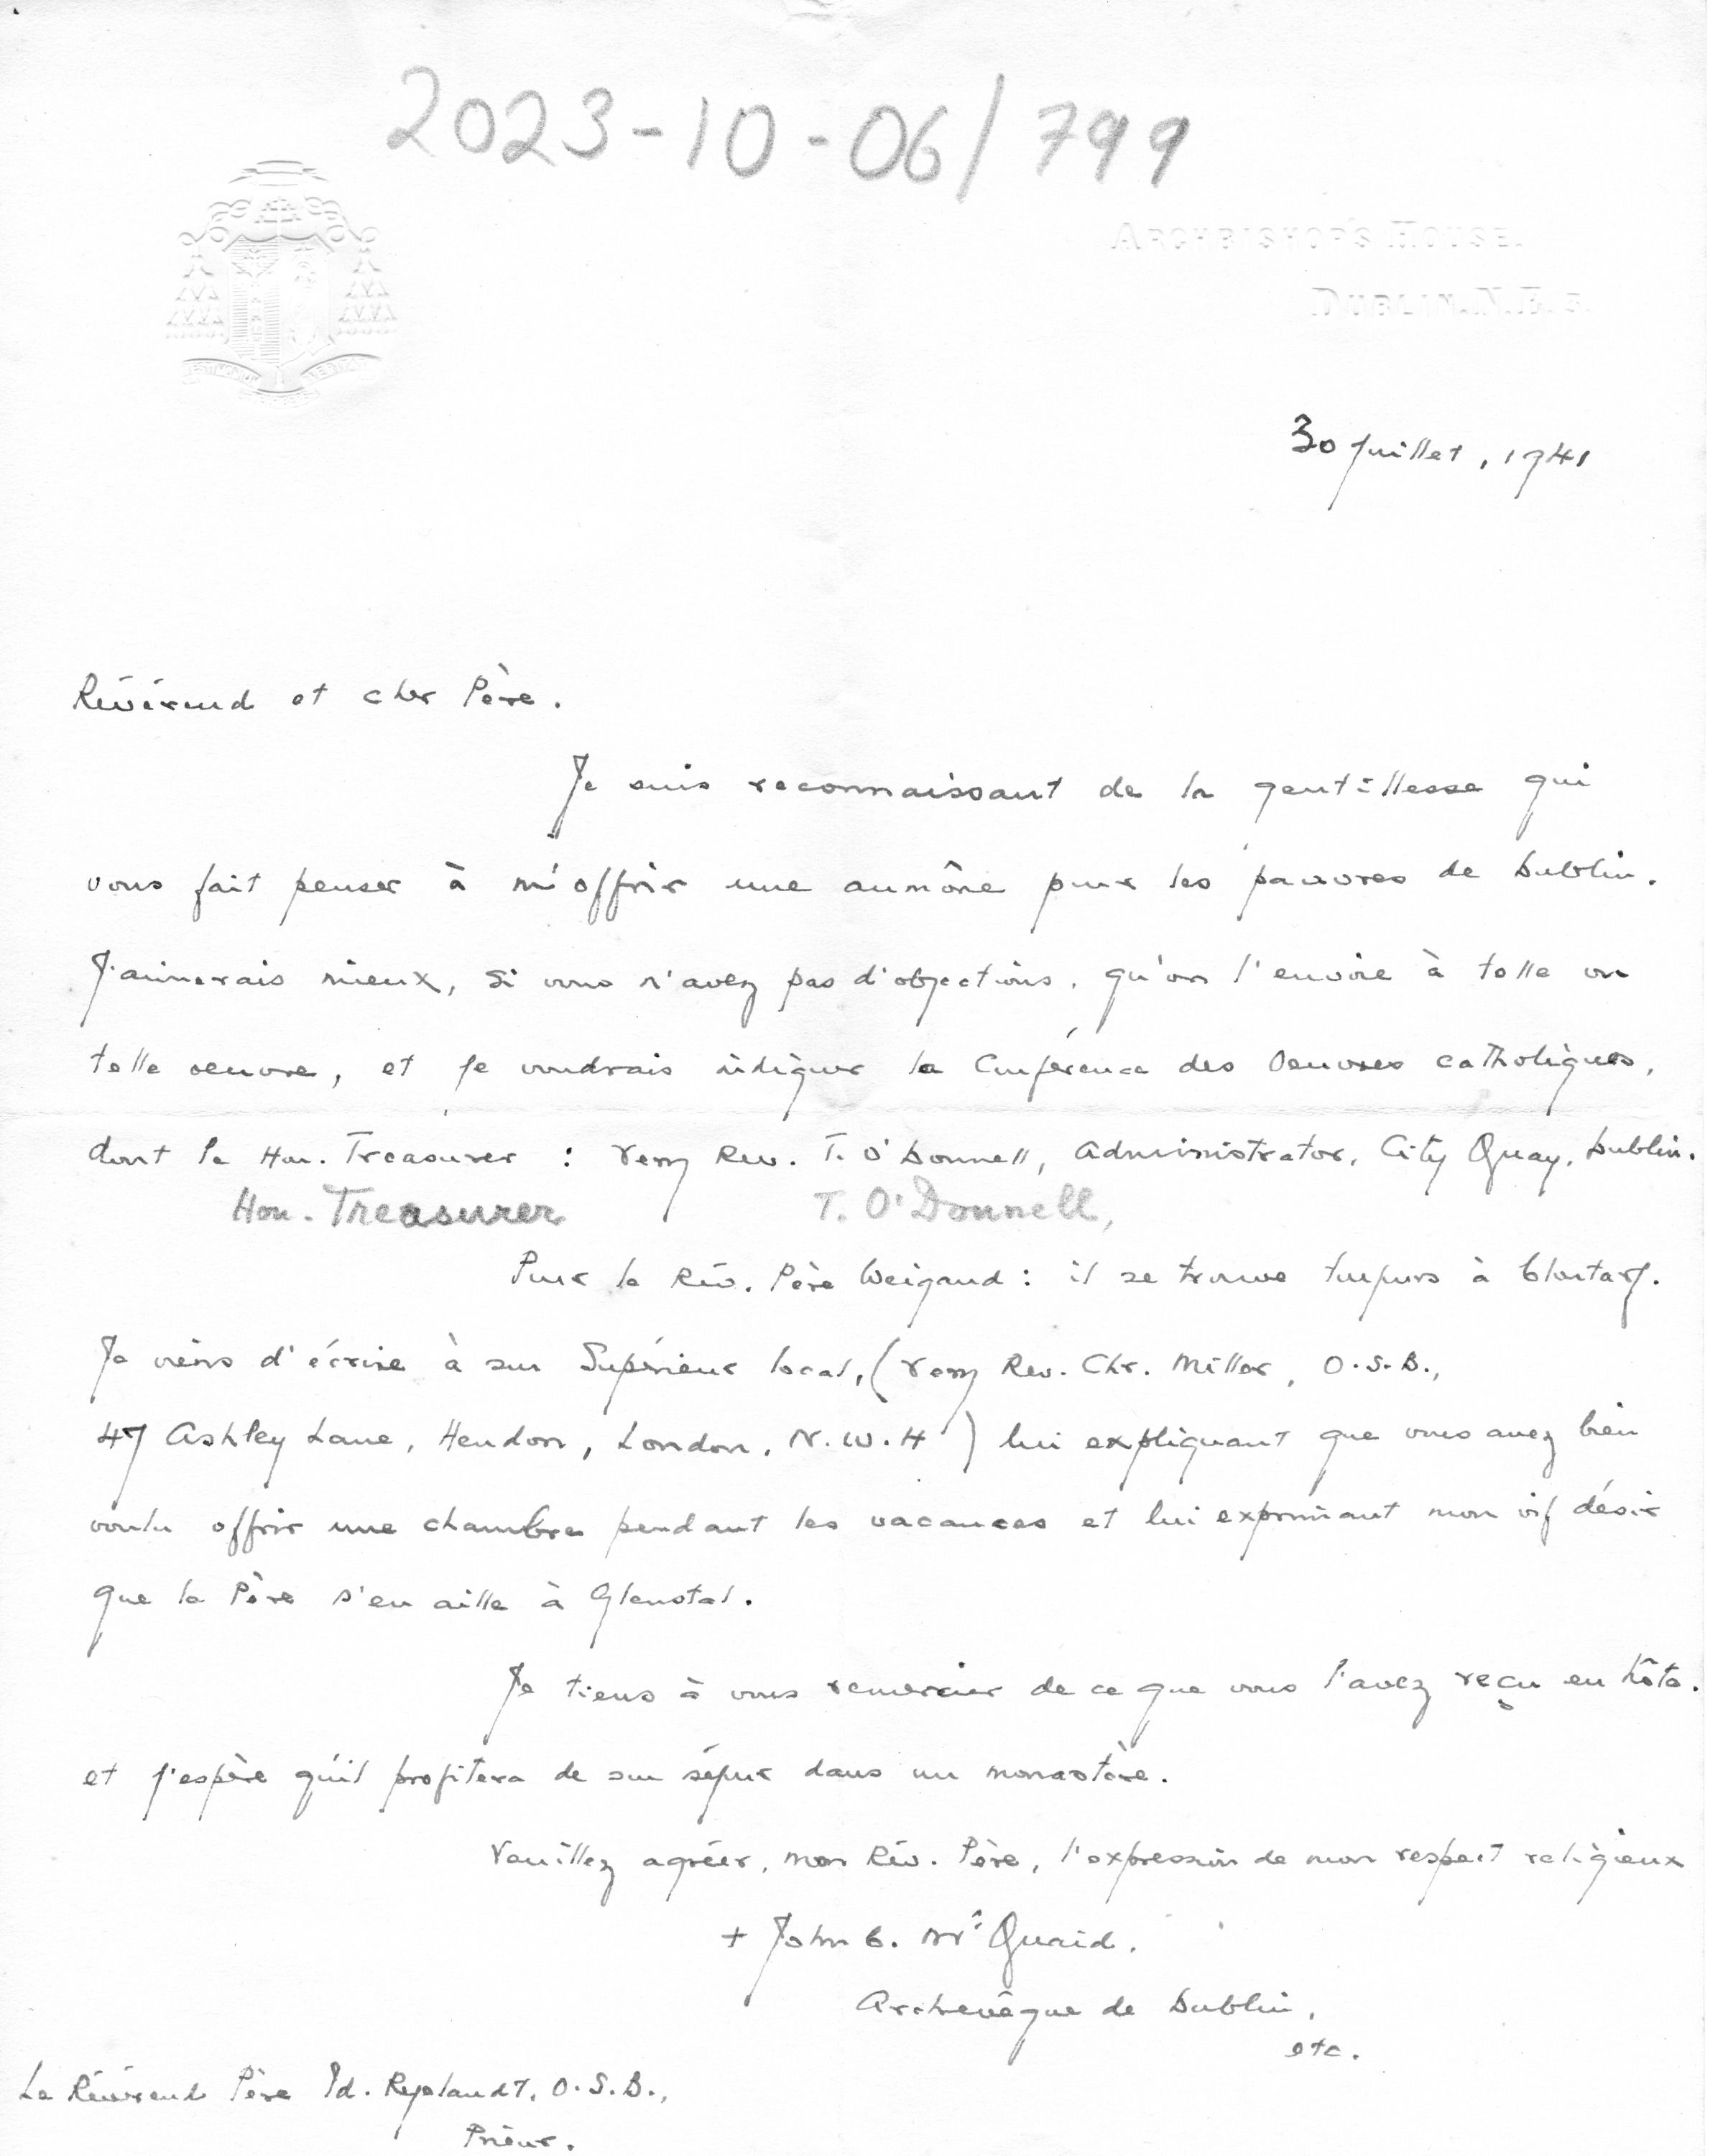 2023-10-06/799
ARCHBISHOP'S HOUSE.
DUBLIN. N.E. 3.
30 Juillet, 1941
Révérend et cher Père.
Je suis reconnaissant de la gentillesse qui
vous fait penser à m'offrir une aumône pour les pauvres de Dublin.
J'aimerais mieux, si vous n'avez pas d'objections, qu'on l'envoie à telle ou
telle oeuvre, et je voudrais indiquer la Conférence des Oeuvres catholiques,
dont le Hon. Treasurer : Very Rev. T. O'Donnell, Administrator, City Quay, Dublin.
Hon. Treasurer T. O'Donnell,
Pour le Rév. Père Weigand : il se trouve toujours à Clontarf.
Je viens d'écrire à son Supérieur local, (Very Rev. Chr. Miller, O.S.B.,
47 Ashley Lane, Hendon, London, N.W.4) lui expliquant que vous avez bien
voulu offrir une chambre pendant les vacances et lui exprimant mon vif désir
que le Père s'en aille à Glenstal.
Je tiens à vous remercier de ce que vous l'avez reçu en hôte.
et j'espère qu'il profitera de son séjour dans un monastère.
Veuillez agréer, mon Rév. Père, l'expression de mon respect religieux
+ John C. McQuaid.
Archevêque de Dublin,
etc.
Le Révérend Père Id. Ryelandt, O.S.B.,
Prieur.